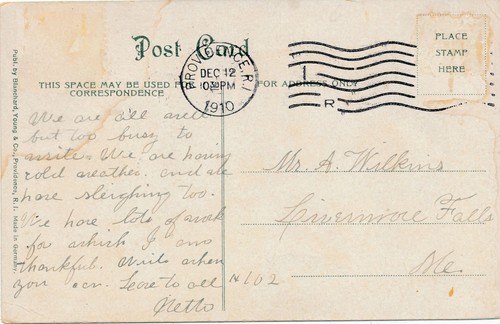 Post Card
THIS SPACE MAY BE USED FOR
CORRESPONDENCE.
FOR ADDRESS ONLY
PLACE
STAMP
HERE
PROVIDENCE, R.I.
DEC 12
PM
1910
1
R
Publ. by Blanchard, Young & Co., Providence, R.I. Made in Germany.
We are all well
but too busy to
write. We are having
cold weather and
have sleighing too.
We have lots of work
for which I am
thankful. Write when
you can. Love to all
Netto
N 102
Mr A. Wilkins
Livermore Falls
Me.